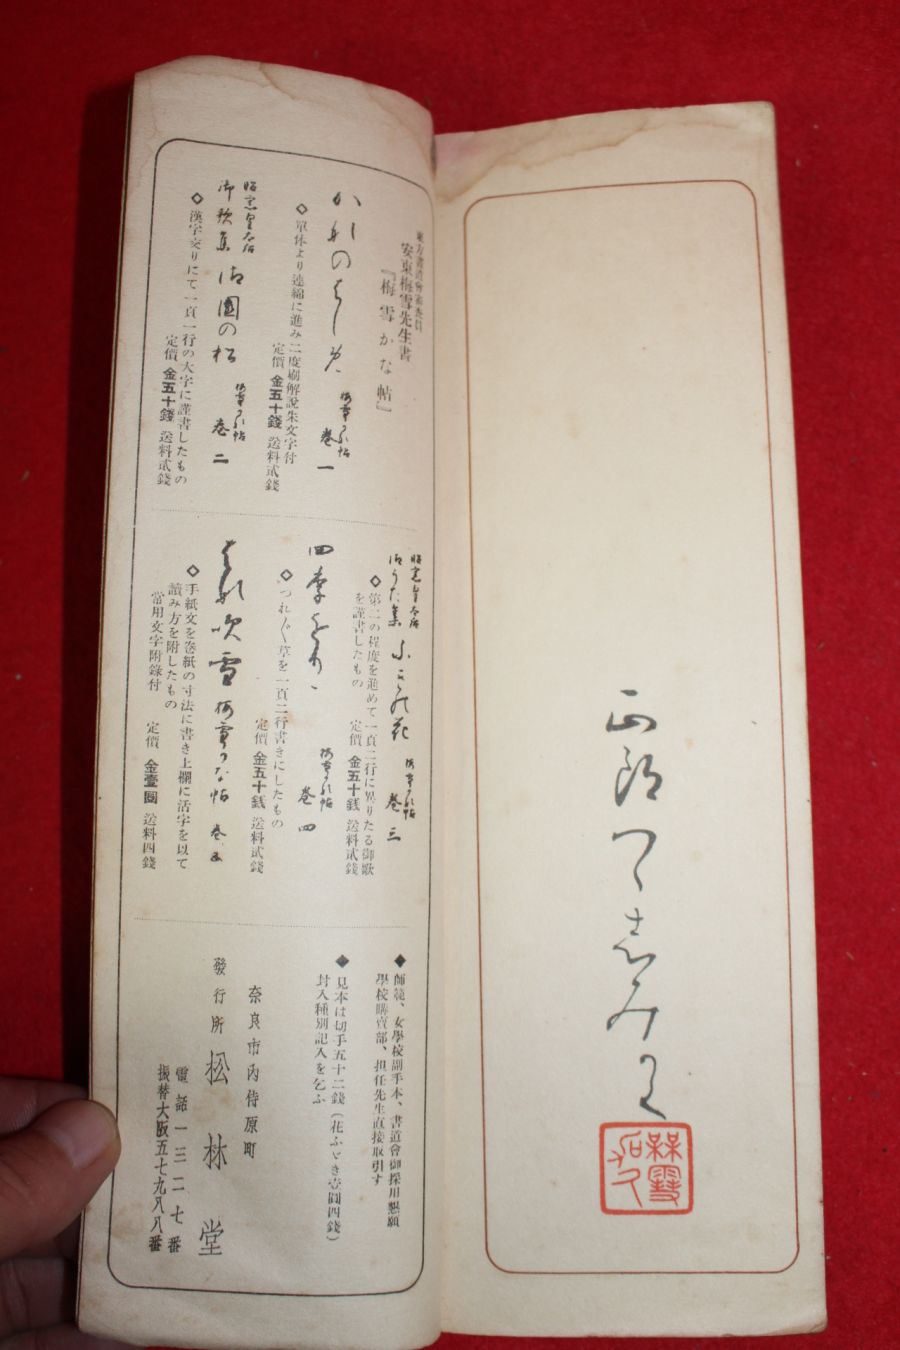 東方書道會審査員
安東梅雪先生書
『梅雪かな帖』
かなのはしめ
梅雪かな帖
巻一
◇單体より連綿に進み二度刷解説朱文字付
定價 金五十錢 送料貮錢
昭憲皇太后
御歌集 御園の松
梅雪かな帖
巻二
◇漢字交りにて一頁一行の大字に謹書したもの
定價 金五十錢 送料貮錢
昭憲皇太后
御うた集
梅雪かな帖
巻三
◇第二の程度を進めて一頁二行に異りたる御歌
を謹書したもの
定價 金五十錢 送料貮錢
四季
梅雪かな帖
巻四
◇つれ〴〵草を一頁二行書きにしたもの
定價 金五十銭 送料貮錢
はな吹雪 梅雪かな帖 巻五
◇手紙文を巻紙の寸法に書き上欄に活字を以て
讀み方を附したもの
常用文字附錄付 定價 金壹圓 送料四錢
◆師範、女學校副手本、書道會御採用懇願
學校購賣部、担任先生直接取引す
◆見本は切手五十二錢(花ふゞき壹圓四錢)
封入種別記入を乞ふ
奈良市內侍原町
發行所 松林堂
電話一三二七番
振替大阪五七九八八番